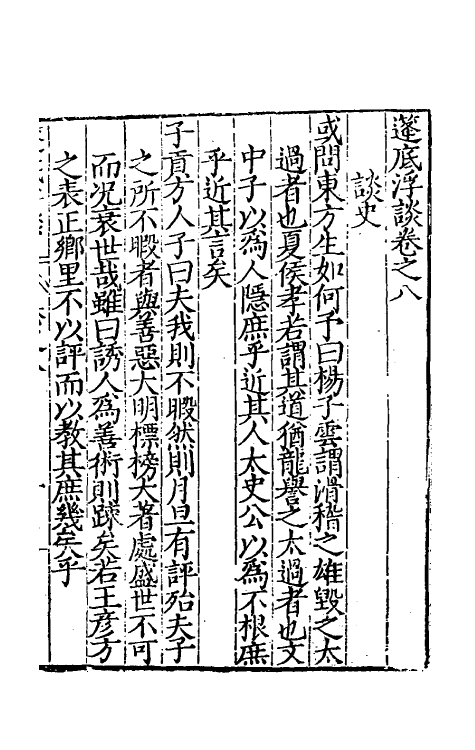 蓬底浮談卷之八
談史
或問東方生如何予曰楊子雲謂滑稽之雄毀之太
過者也夏侯孝若謂其道猶龍譽之太過者也文
中子以為人隱庶乎近其人太史公以為不根庶
乎近其言矣
子貢方人子曰夫我則不暇然則月旦有評殆夫子
之所不暇者與善惡大明標榜大著處盛世不可
而况衰世哉雖曰誘人為善術則踈矣若王彥方
之表正鄉里不以評而以教其庶幾矣乎